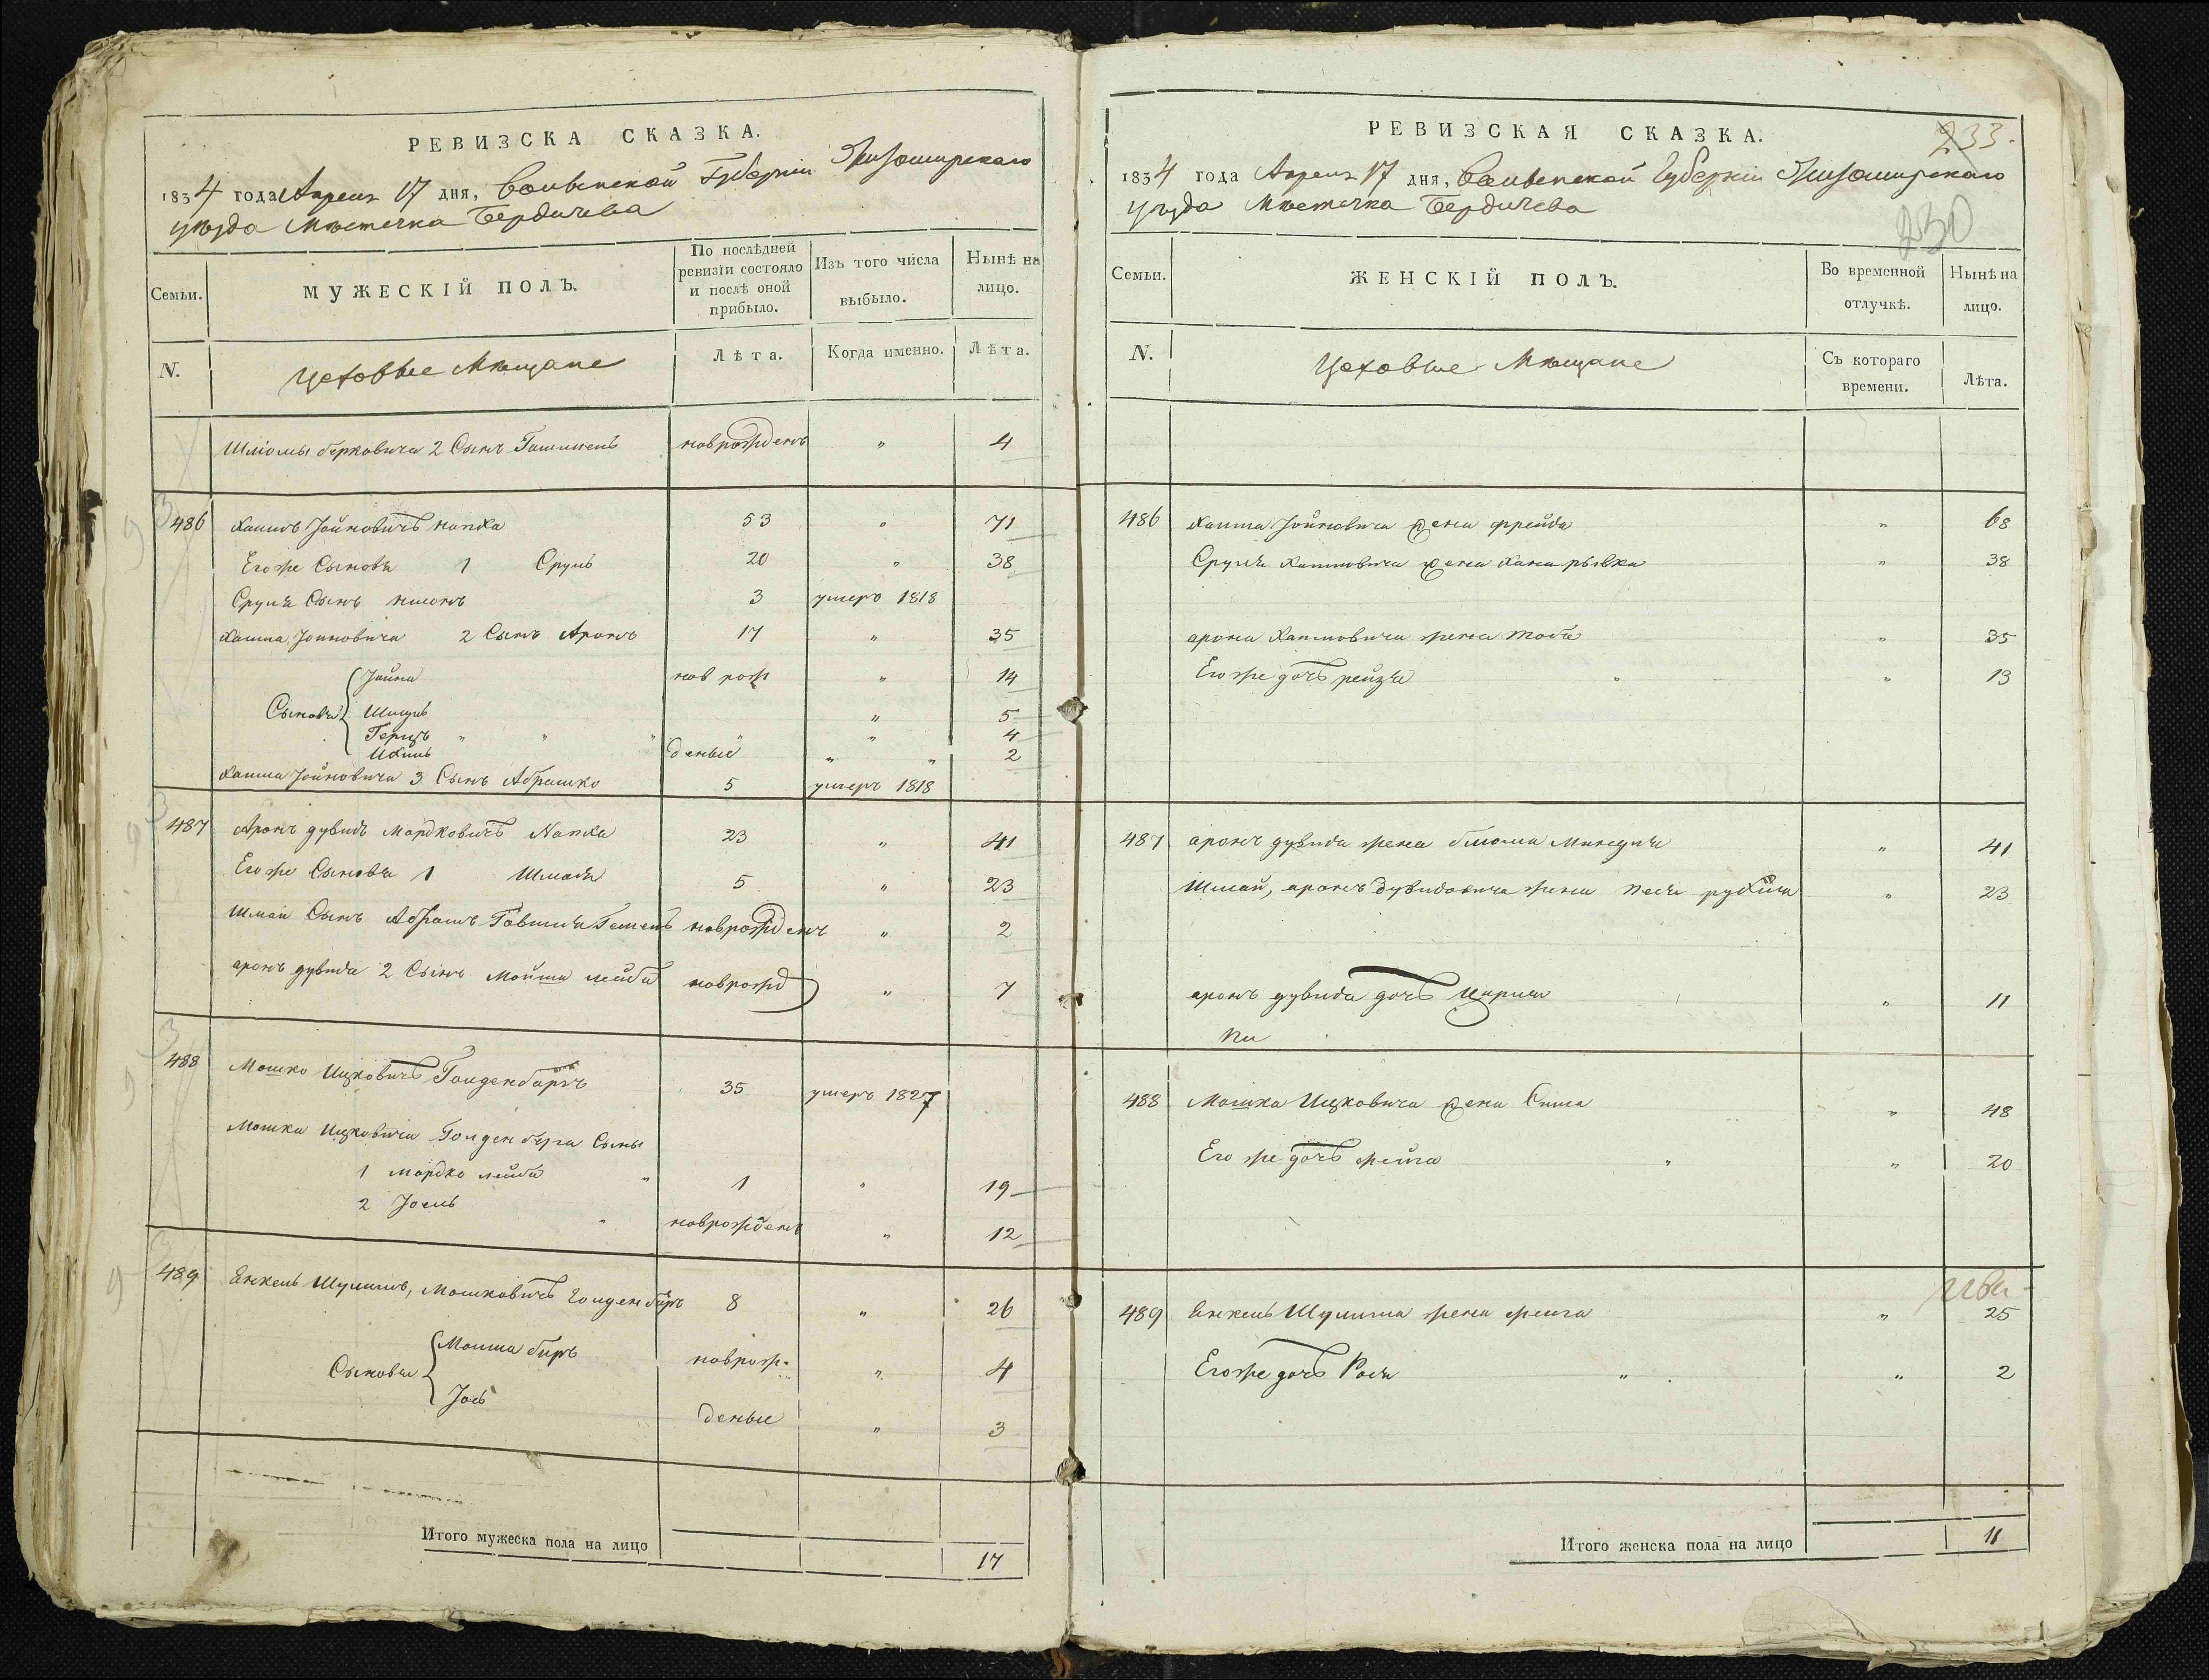 РЕВИЗСКА СКАЗКА.
1834 года Апреля 17 дня, Волынской Губерніи Житомирскаго
уѣзда Мѣстечка Бердичева
Семьи.
МУЖЕСКІЙ ПОЛЪ.
По послѣдней ревизіи состояло и послѣ оной прибыло.
Изъ того числа выбыло.
Нынѣ на лицо.
N.
Цеховые Мѣщане
Лѣта.
Когда именно.
Лѣта.
Шліомы Берковича 2 Сынъ новрожденъ " 4
486 Хаимъ Іойновичъ Капха 53 " 71
Егоже Сыновья 1 Сруль 20 " 38
Сруля Сынъ 3 умеръ 1818
Хаима Іойновича 2 Сынъ Аронъ 17 " 35
Іойна нов рож " 14
Сыновья Шмуль " 5
Герцъ " " " " 4
Ихиль деные " " 2
Хаима Іойновича 3 Сынъ Абрашко 5 умеръ 1818
487 Аронъ дувидъ Мордковичъ Капха 23 " 41
Егоже Сыновья 1 Шмая 5 " 23
Шмаи Сынъ Абрамъ новрожденъ " 2
аронъ дувида 2 Сынъ Мойша лейба новрожд " 7
488 Мошко Ицковичъ Голденбергъ 35 умеръ 1827
Мошка Ицковича Голденберга Сыны
1 Мордко лейба " 1 " 19
2 Іосль " новрожденъ " 12
489 Янкель Шулимъ, Мошковичъ 8 " 26
Сыновья Мошка беръ новрож. " 4
Іось деные " 3
Итого мужеска пола на лицо 17
РЕВИЗСКАЯ СКАЗКА.
233.
1834 года Апреля 17 дня, Волынской Губерніи Житомирскаго
уѣзда Мѣстечка Бердичева
230
Семьи.
ЖЕНСКІЙ ПОЛЪ.
Во временной отлучкѣ.
Нынѣ на лицо.
N.
Цеховые Мѣщане
Съ котораго времени.
Лѣта.
486 Хаима Іойновича жена фрейда " 68
Сруля Хаимовича жена Хана рывка " 38
арона Хаимовича жена тоба " 35
Егоже дочь рейзя " " 13
487 аронъ дувида жена блюма Миндля " 41
Шмай, аронъ дувидовича жена песя рухля " 23
аронъ дувида дочь Цирля " 11
488 Мошка Ицковича жена Сима " 48
Его же дочь фейга " " 20
489 Янкель Шулима жена фейга " 25
Егоже дочь Рося " " 2
Итого женска пола на лицо 11